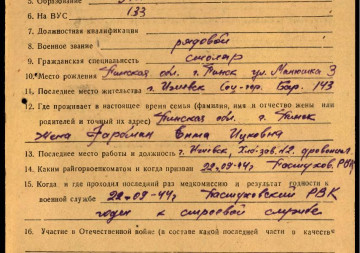 5. Образование
6. На ВУС 133
7. Должностная квалификация
8. Военное звание рядовой
9. Гражданская специальность столяр
10. Место рождения Пинская обл. г. Пинск ул. 3
11. Последнее место жительства г. Ижевск Соц-гор. Бар. 143
12. Где проживает в настоящее время семья (фамилия, имя и отчество жены или
родителей и точный их адрес) Пинская обл. г. Пинск
Жена Фарбман
13. Последнее место работы и должность г. Ижевск,
14. Каким райгорвоенкоматом и когда призван 22-09-44г Пастухов. РВК
15. Когда и где проходил последний раз медкомиссию и результат годности к
военной службе 22-09-44г Пастуховский РВК
годен к строевой службе
16. Участие в Отечественной войне (в составе какой последней части и в качестве